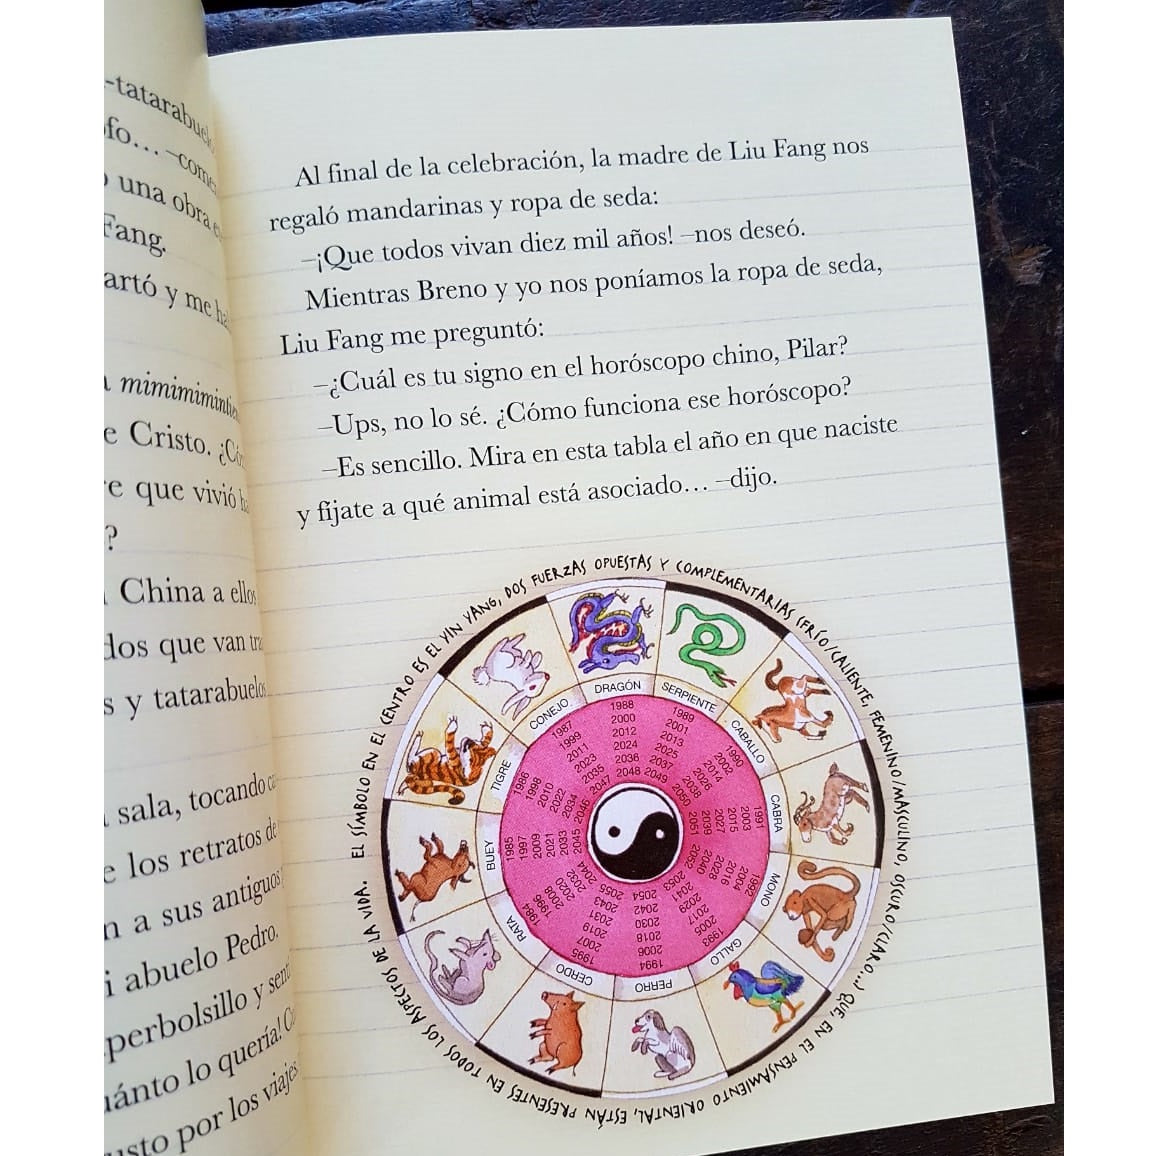 -tatarabuelo
ofo… –come
una obra e
Fang.
artó y me ha
mimimimintie
e Cristo. ¿Có
re que vivió h
?
China a ellos
dos que van tra
s y tatarabuelos
sala, tocando ca
e los retratos de
n a sus antiguos
i abuelo Pedro.
perbolsillo y sent
uánto lo quería! C
usto por los viajes
Al final de la celebración, la madre de Liu Fang nos
regaló mandarinas y ropa de seda:
–¡Que todos vivan diez mil años! –nos deseó.
Mientras Breno y yo nos poníamos la ropa de seda,
Liu Fang me preguntó:
–¿Cuál es tu signo en el horóscopo chino, Pilar?
–Ups, no lo sé. ¿Cómo funciona ese horóscopo?
–Es sencillo. Mira en esta tabla el año en que naciste
y fíjate a qué animal está asociado… –dijo.
EL SÍMBOLO EN EL CENTRO ES EL YIN YANG, DOS FUERZAS OPUESTAS Y COMPLEMENTARIAS (FRÍO/CALIENTE, FEMENINO/MASCULINO, OSCURO/CLARO...) QUE, EN EL PENSAMIENTO ORIENTAL, ESTÁN PRESENTES EN TODOS LOS ASPECTOS DE LA VIDA.
DRAGÓN
1988
2000
2012
2024
2036
2048
SERPIENTE
1989
2001
2013
2025
2037
2049
CABALLO
1990
2002
2014
2026
2038
2050
CABRA
1991
2003
2015
2027
2039
2051
MONO
1992
2004
2016
2028
2040
2052
GALLO
1993
2005
2017
2029
2041
2053
PERRO
1994
2006
2018
2030
2042
2054
CERDO
1995
2007
2019
2031
2043
2055
RATA
1984
1996
2008
2020
2032
2044
BUEY
1985
1997
2009
2021
2033
2045
TIGRE
1986
1998
2010
2022
2034
2046
CONEJO
1987
1999
2011
2023
2035
2047